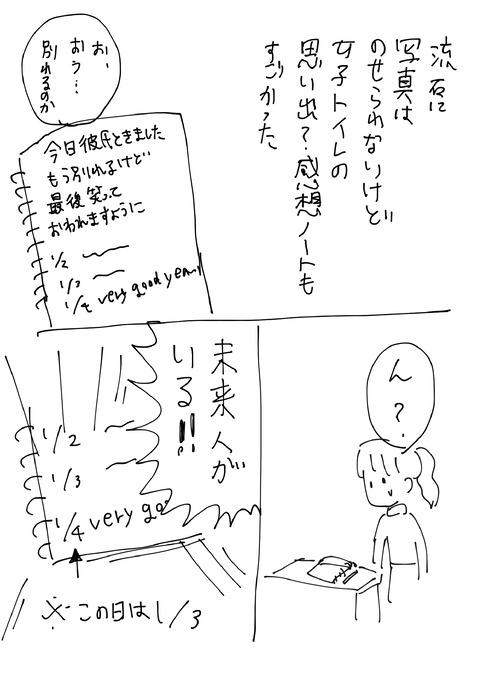 流石に
写真は
のせられないけど
女子トイレの
思い出?感想ノートも
すごかった
お、
おう…
別れるのか
今日彼氏ときました
もう別れるけど
最後笑って
おわれますように
1/2
1/3
1/4 very good year!
ん?
未来人が
いる!!
1/2
1/3
1/4 very go
※この日は1/3